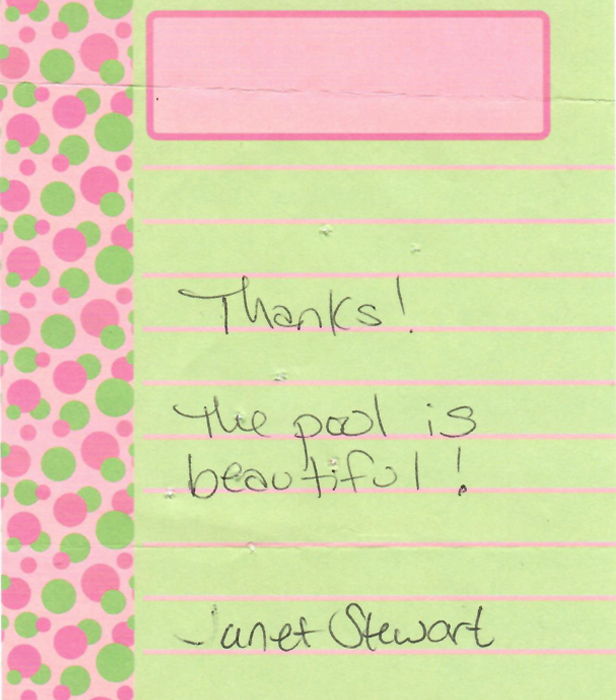 Thanks!
The pool is
beautiful!
Janet Stewart